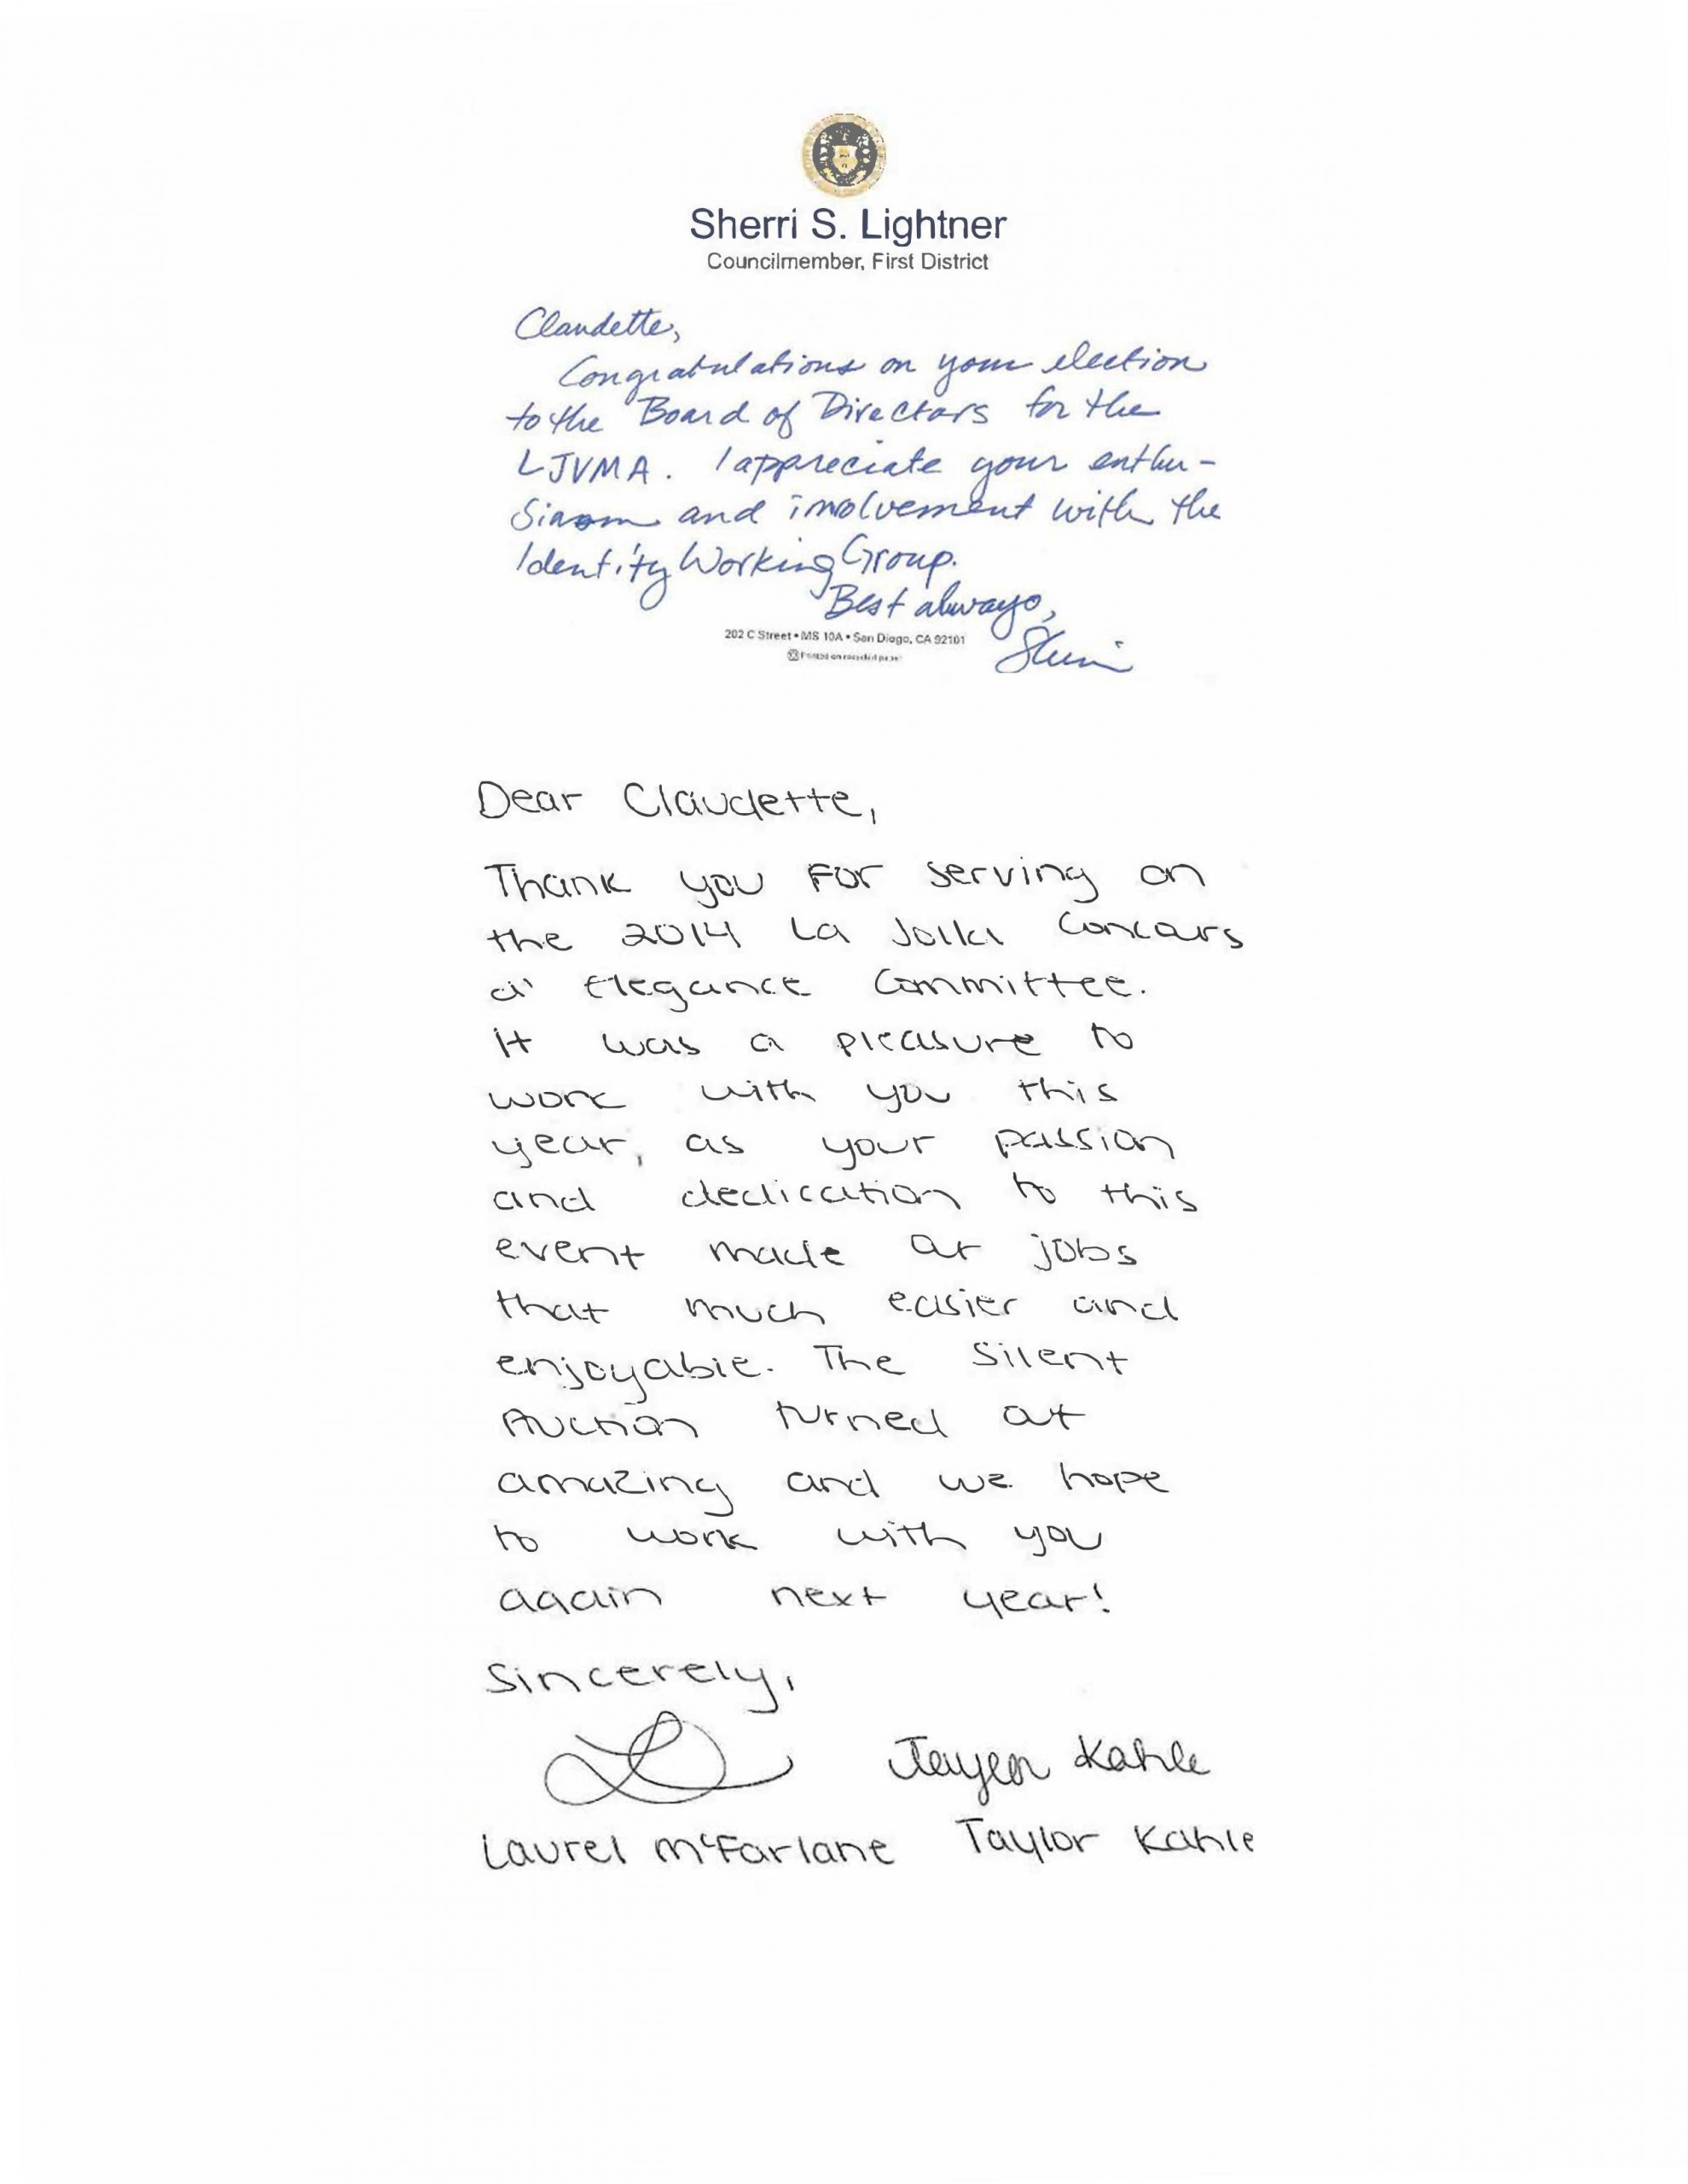 Sherri S. Lightner
Councilmember, First District
Claudette,
Congratulations on your election
to the Board of Directors for the
LJVMA. I appreciate your enthu-
siasm and involvement with the
Identity Working Group.
Best always,
Sherri
202 C Street • MS 10A • San Diego, CA 92101
Printed on recycled paper
Dear Claudette,
Thank you for serving on
the 2014 La Jolla Concours
d' Elegance Committee.
It was a pleasure to
work with you this
year, as your passion
and dedication to this
event made our jobs
that much easier and
enjoyable. The Silent
Auction turned out
amazing and we hope
to work with you
again next year!
Sincerely,
Taylor Kahle
Laurel McFarlane Taylor Kahle